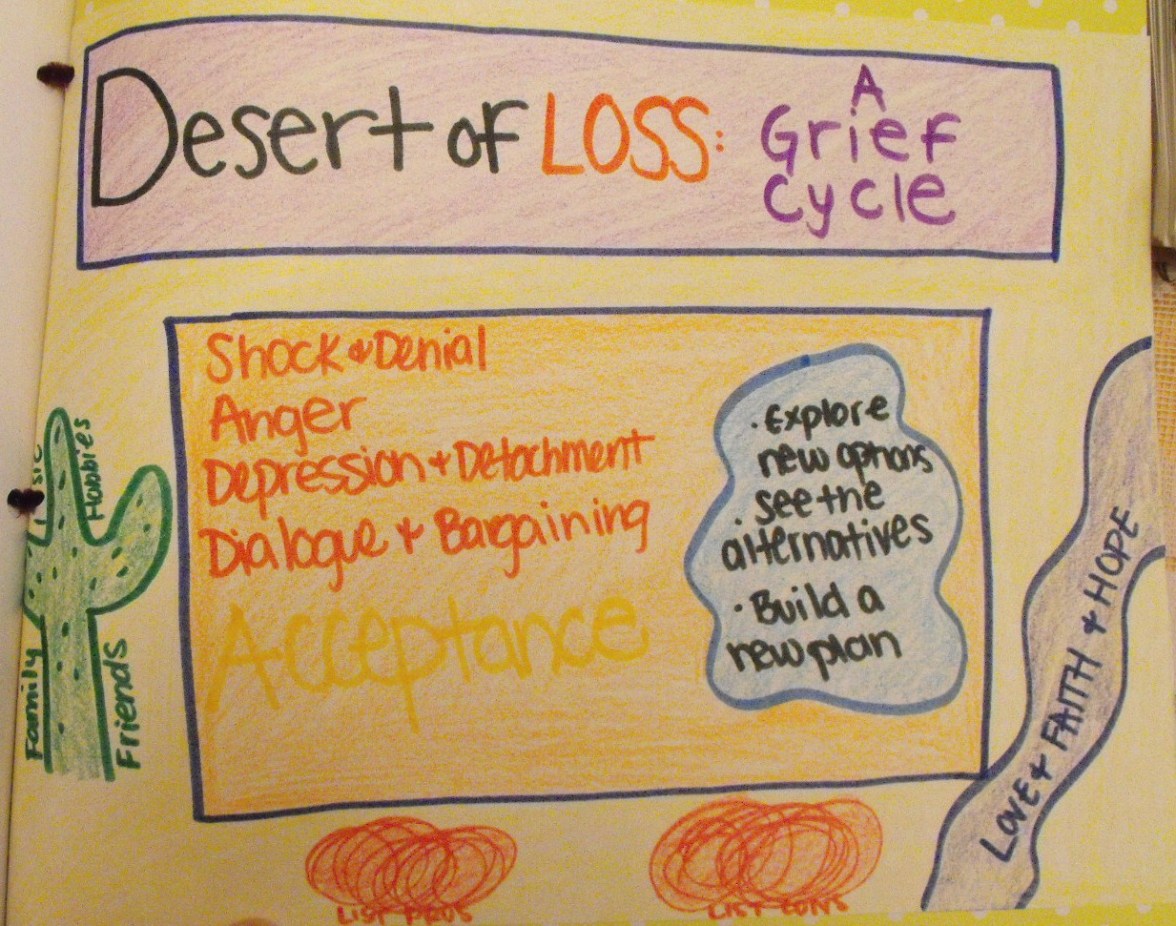 Desert of LOSS: A
Grief
Cycle
Shock & Denial
Anger
Depression + Detachment
Dialogue + Bargaining
Acceptance
• Explore
new options
• see the
alternatives
• Build a
new plan
Hobbies
Family
Friends
LOVE + FAITH + HOPE
LIST PROS
LIST CONS